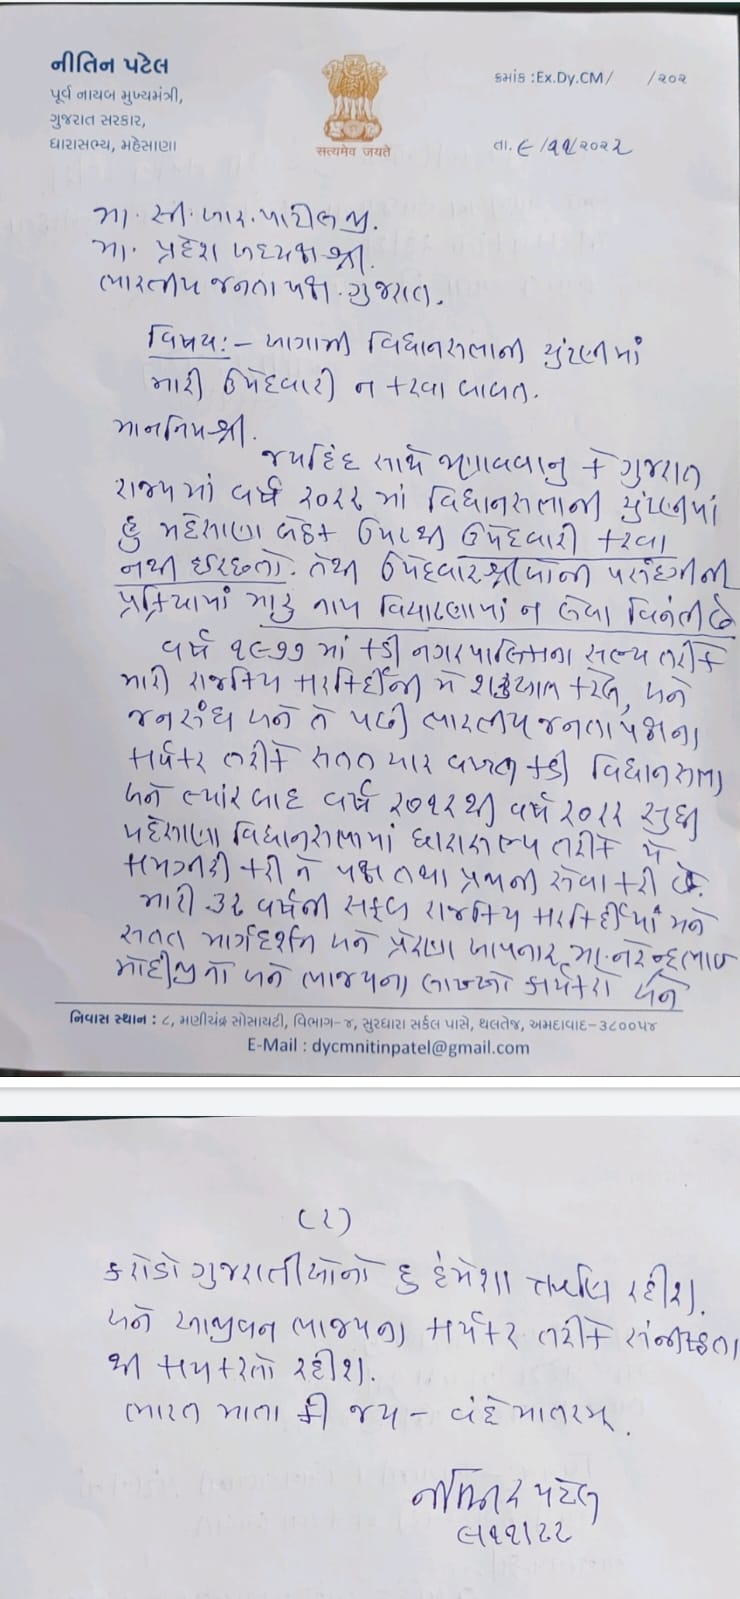 નીતિન પટેલ
પૂર્વ નાયબ મુખ્યમંત્રી,
ગુજરાત સરકાર,
ધારાસભ્ય, મહેસાણા
सत्यमेव जयते
ક્રમાંક :Ex.Dy.CM/ /૨૦૨
તા. ૯/૧૧/૨૦૨૨
મા. સી. આર. પાટીલજી.
મા. પ્રદેશ અધ્યક્ષશ્રી.
ભારતીય જનતા પક્ષ. ગુજરાત.
વિષય:- આગામી વિધાનસભાની ચુંટણીમાં
મારી ઉમેદવારી ન કરવા બાબત.
માનનિયશ્રી.
જયહિંદ સાથે જણાવવાનુ કે ગુજરાત
રાજ્યમાં વર્ષ ૨૦૨૨ માં વિધાનસભાની ચુંટણીમાં
હું મહેસાણા બેઠક ઉપરથી ઉમેદવારી કરવા
નથી ઈચ્છતો. તેથી ઉમેદવારશ્રીઓની પસંદગીની
પ્રક્રિયામાં મારૂ નામ વિચારણામાં ન લેવા વિનંતી છે
વર્ષ ૧૯૭૭ માં કડી નગરપાલિકાના સભ્ય તરીકે
મારી રાજકિય કારકિર્દીની મે શરૂઆત કરેલ, અને
જનસંઘ અને તે પછી ભારતીય જનતા પક્ષના
કાર્યકર તરીકે સતત ચાર વખત કડી વિધાનસભા
અને ત્યાંરબાદ વર્ષ ૨૦૧૨થી વર્ષ ૨૦૨૨ સુધી
મહેસાણા વિધાનસભામાં ધારાસભ્ય તરીકે મે
કામગીરી કરી ને પક્ષ તથા પ્રજાની સેવા કરી છે.
મારી ૩૨ વર્ષની સફળ રાજકિય કારકિર્દીમાં મને
સતત માર્ગદર્શન અને પ્રેરણા આપનાર મા. નરેન્દ્રભાઇ
મોદીજીનો અને ભાજપના લાખ્ખો કાર્યકરો અને
નિવાસ સ્થાન : ૮, મણીચંદ્ર સોસાયટી, વિભાગ-૪, સુરધારા સર્કલ પાસે, થલતેજ, અમદાવાદ-૩૮૦૦૫૪
E-Mail : dycmnitinpatel@gmail.com
(૨)
કરોડો ગુજરાતીઓનો હું હંમેશા રહીશ.
અને આજીવન ભાજપના કાર્યકર તરીકે સંનીષ્ઠતા
થી કાર્ય કરતો રહીશ.
ભારત માતા કી જય - વંદે માતરમ્.
નીતિન પટેલ
૯૧૧/૨૨